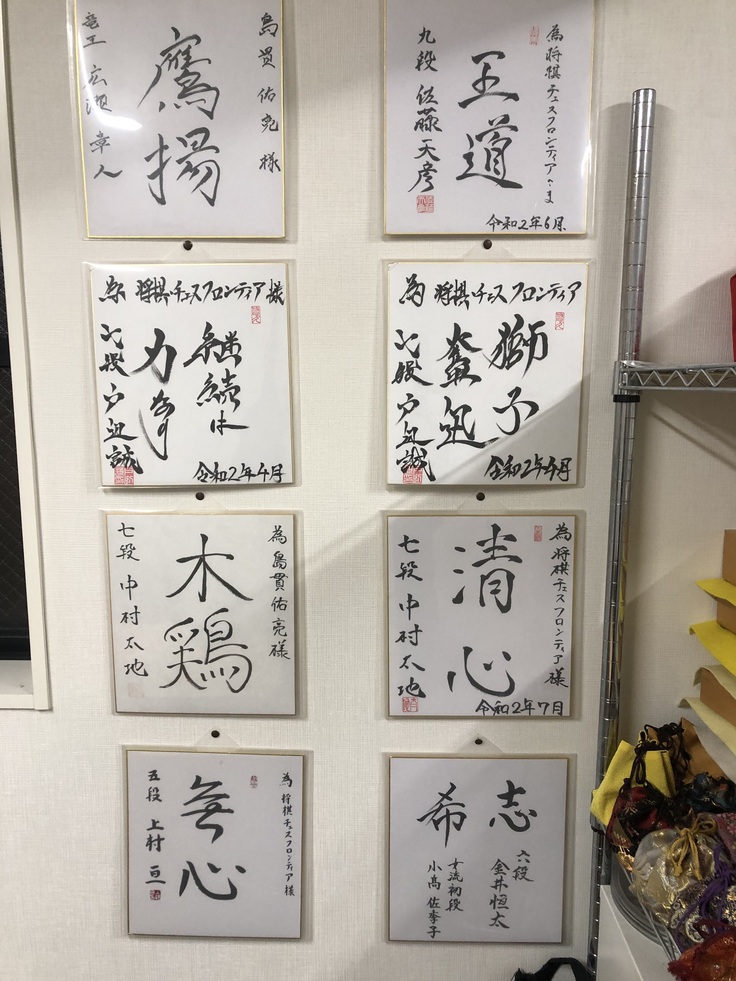 島貫佑亮様
鷹揚
竜王 広瀬章人
為将棋チェスフロンティアさま
王道
九段 佐藤天彦
令和2年6月
為 将棋・チェスフロンティア様
継続は
力なり
七段 戸辺誠
令和2年4月
為 将棋・チェスフロンティア
獅子
奮迅
七段 戸辺誠
令和2年4月
為島貫佑亮様
木鶏
七段 中村太地
為将棋チェスフロンティア様
清心
七段 中村太地
令和2年7月
為 将棋チェスフロンティア様
無心
五段 上村亘
志
希
六段 金井恒太
女流初段 小高佐季子